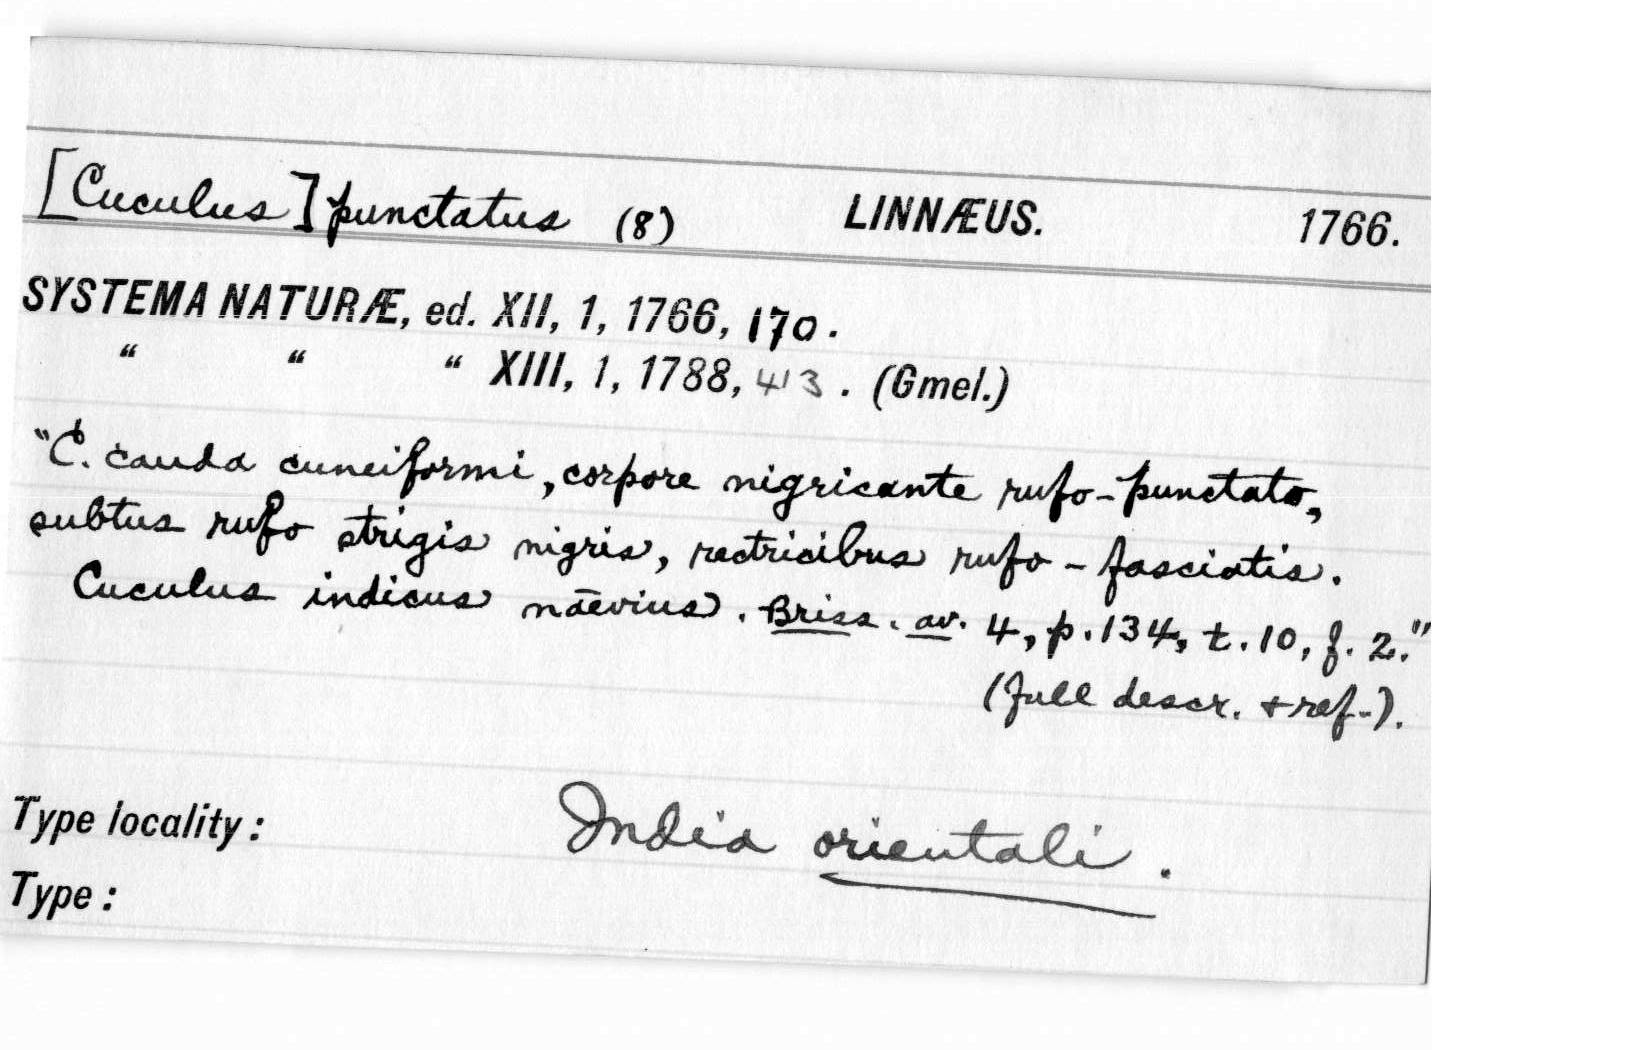 [Cuculus] punctatus (8) LINNÆUS. 1766.
SYSTEMA NATURÆ, ed. XII, 1, 1766, 170.
“ “ “ XIII, 1, 1788, 413. (Gmel.)
"C. cauda cuneiformi, corpore nigricante rufo-punctato,
subtus rufo strigis nigris, rectricibus rufo-fasciatis.
Cuculus indicus nāevius. Briss. av. 4, p. 134, t. 10, f. 2."
(full descr. + ref.).
Type locality: India orientali.
Type: